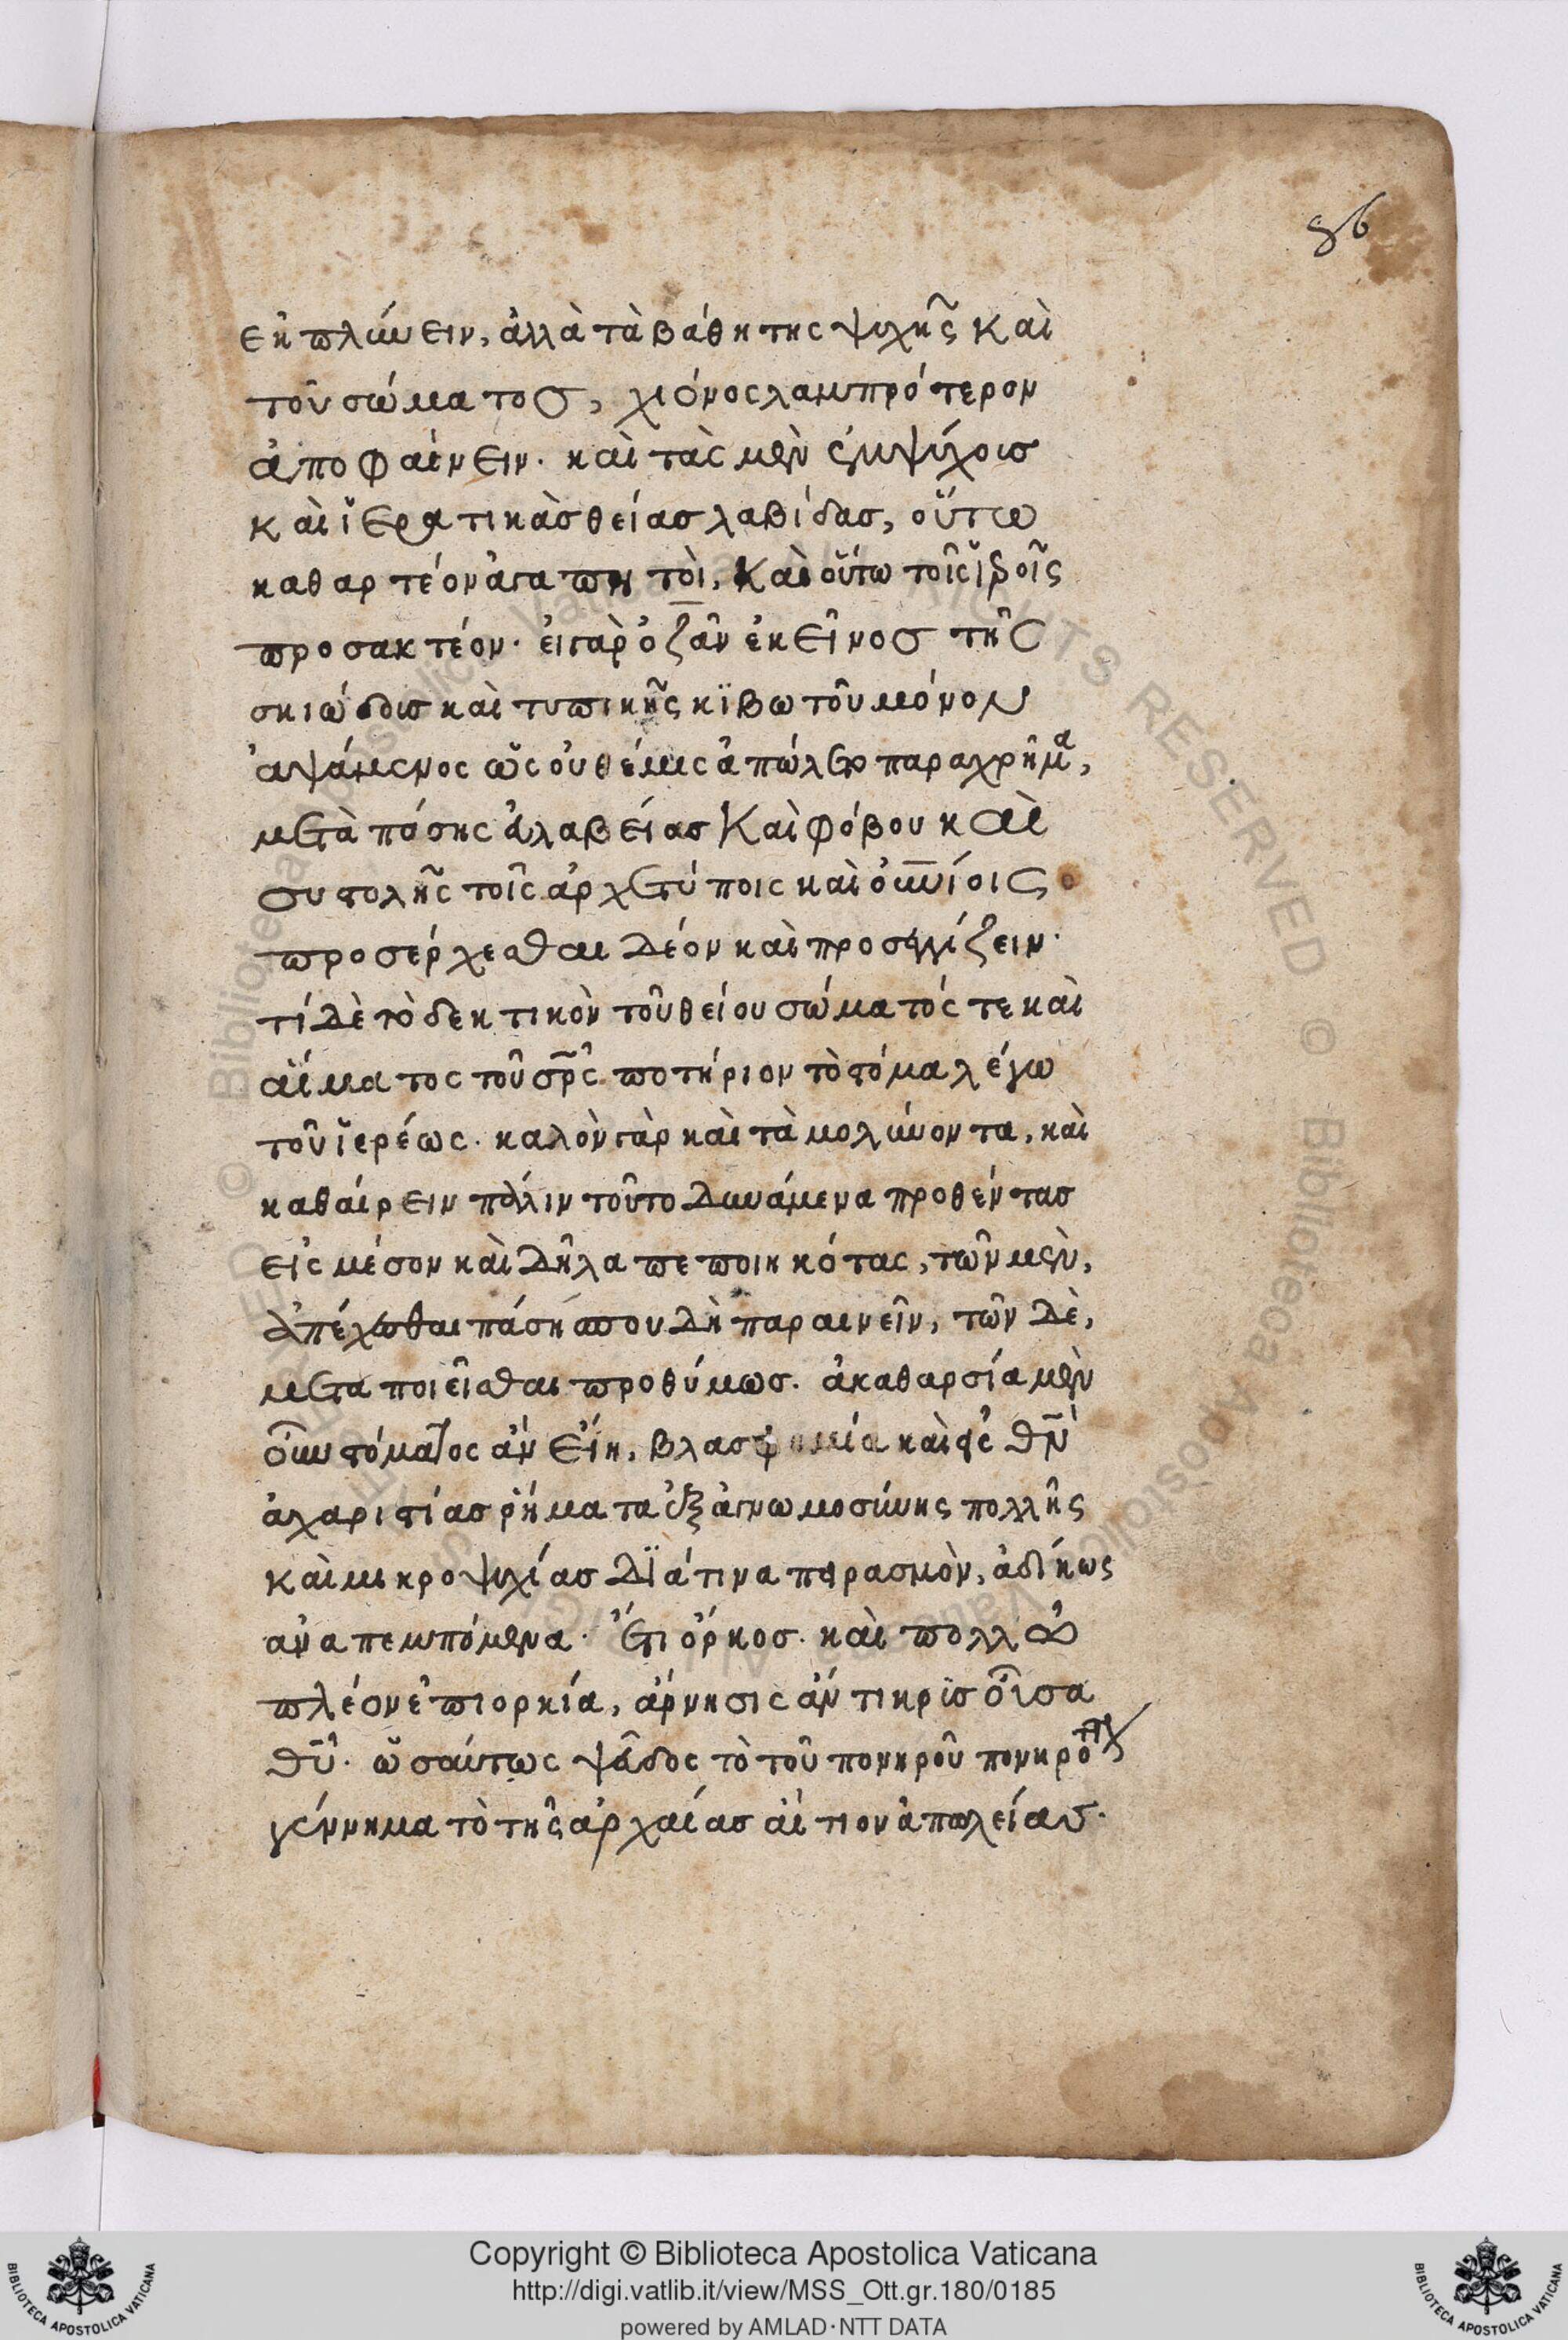 86
ἐκπλύνειν, ἀλλὰ τὰ βάθη της ψυχῆς καὶ
τοῦ σώματος, χιόνος λαμπρότερον
ἀποφαίνειν· καὶ τὰς μὲν ἐμψύχοις
καὶ ἱερατικὰς θείας λαβίδας, οὕτω
καθαρτέον ἀγαπητοὶ, καὶ οὕτω τοῖς ἱεροῖς
προσακτέον· εἰ γὰρ ὁ ζὰν ἐκεῖνος τῆς
σκιώδους καὶ τυπικῆς κϊβωτοῦ μόνον
ἁψάμενος ὡς οὐ θέμις ἀπώλετο παραχρῆμα,
μετὰ πάσης εὐλαβείας καὶ φόβου καὶ
συστολῆς τοῖς ἀρχετύποις καὶ οὐνίοις
προσέρχεσθαι δέον καὶ προσεγγίζειν·
τί δὲ τὸ δεκτικὸν τοῦ θείου σώματός τε καὶ
αἵματος τοῦ σρς ποτήριον τὸ στόμα λέγω
τοῦ ἱερέως· καλὸν γὰρ καὶ τὰ μολύνοντα, καὶ
καθαίρειν πάλιν τοῦτο δυνάμενα προθέντας
εἰς μέσον καὶ δῆλα πεποιηκότας, τῶν μὲν,
ἀπέχεσθαι πάση σπουδὴ παραινεῖν, τῶν δὲ,
μεταποιεῖσθαι προθύμως· ἀκαθαρσία μὲν
οὖν στόματος ἂν εἴη, βλασφημία καὶ εἰς θν
ἀχαριστίας ῥήματα ἐξ ἀγνωμοσύνης πολλῆς
καὶ μικροψυχίας δϊά τινα πειρασμὸν, ἀδίκως
ἀναπεμπόμενα· ἔτι ὅρκος· καὶ πολλῶ
πλέον ἐπιορκία, ἄρνησις ἄντικρϊς οὖσα
θυ· ὡσαύτως ψεῦδος τὸ τοῦ πονηροῦ πονηρὸν
γέννημα τὸ τῆς ἀρχαίας αἴτιον ἀπωλείας·
Copyright © Biblioteca Apostolica Vaticana
http://digi.vatlib.it/view/MSS_Ott.gr.180/0185
powered by AMLAD·NTT DATA